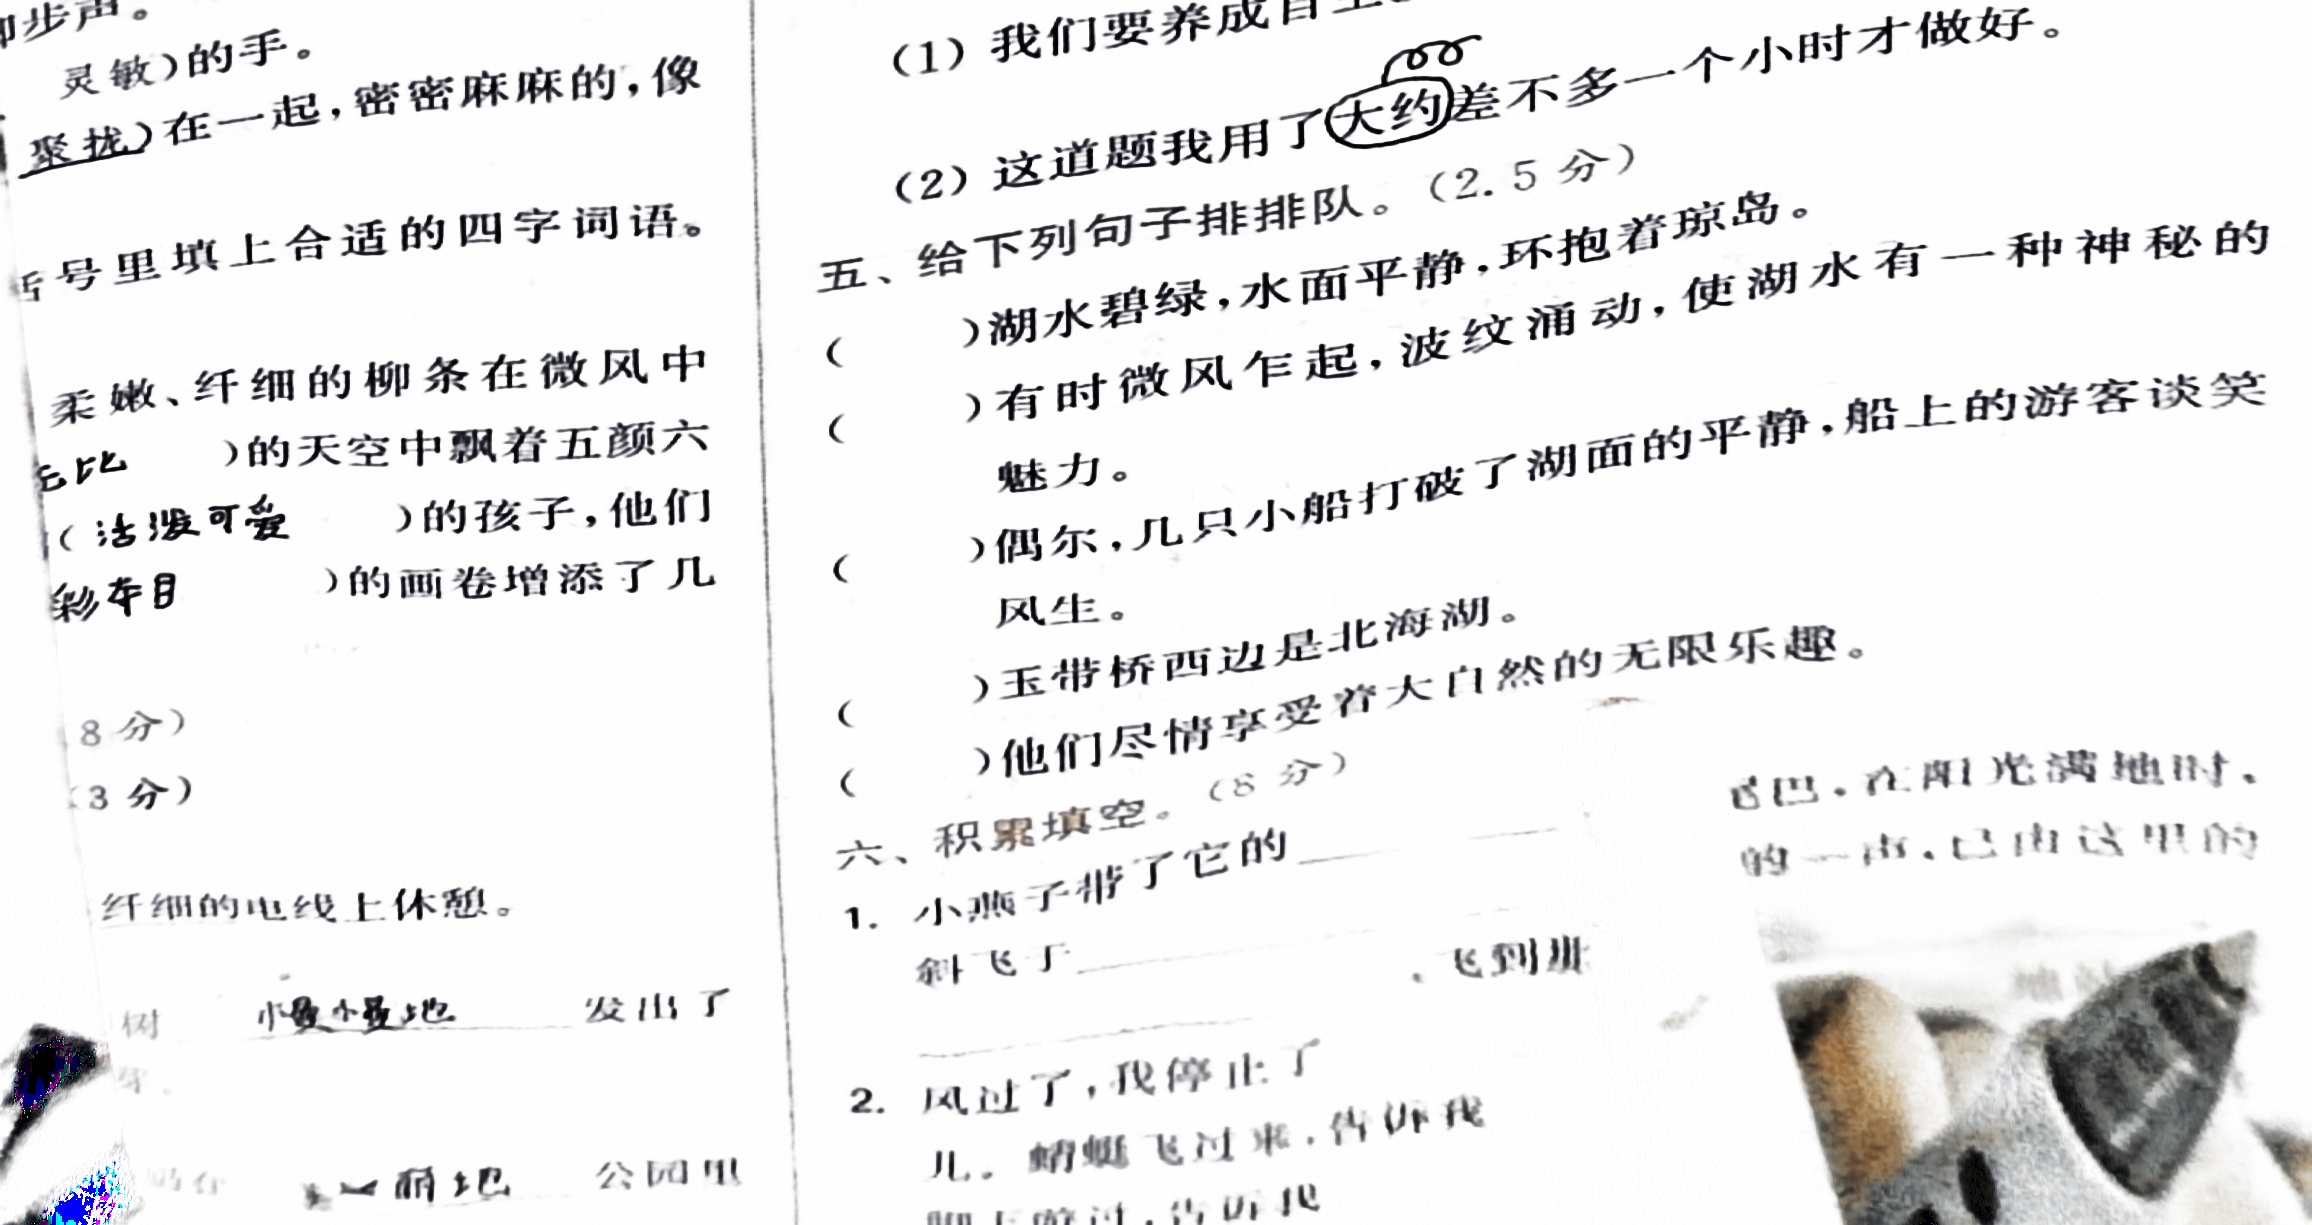 脚步声。
灵敏)的手。
聚拢)在一起,密密麻麻的,像
号里填上合适的四字词语。
柔嫩、纤细的柳条在微风中
)的天空中飘着五颜六
(活泼可爱 )的孩子,他们
)的画卷增添了几
8分)
(3分)
纤细的电线上休憩。
树 慢慢地 发出了
芽。
公园里
(1)我们要养成
(2)这道题我用了大约差不多一个小时才做好。
五、给下列句子排排队。(2.5分)
( )湖水碧绿,水面平静,环抱着琼岛。
( )有时微风乍起,波纹涌动,使湖水有一种神秘的
魅力。
( )偶尔,几只小船打破了湖面的平静,船上的游客谈笑
风生。
( )玉带桥西边是北海湖。
( )他们尽情享受着大自然的无限乐趣。
六、积累填空。(8分)
1. 小燕子带了它的
尾巴,在阳光满地时,
斜飞于
,飞到
的一声,已由这里的
2. 风过了,我停止了
儿。蜻蜓飞过来,告诉我
脚下游过,告诉我